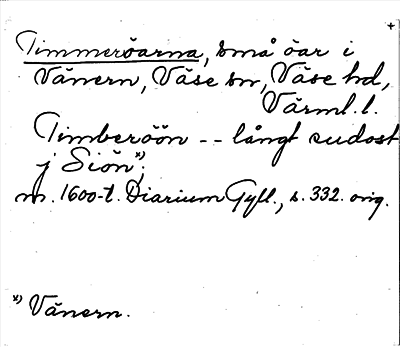 +
Timmeröarna, små öar i
Vänern, Väse sn, Väse hd,
Värml. l.
Timberöön -- långt sudost
j Siön*);
m. 1600-t. Diarium Gyll., s. 332. orig.
*) Vänern.